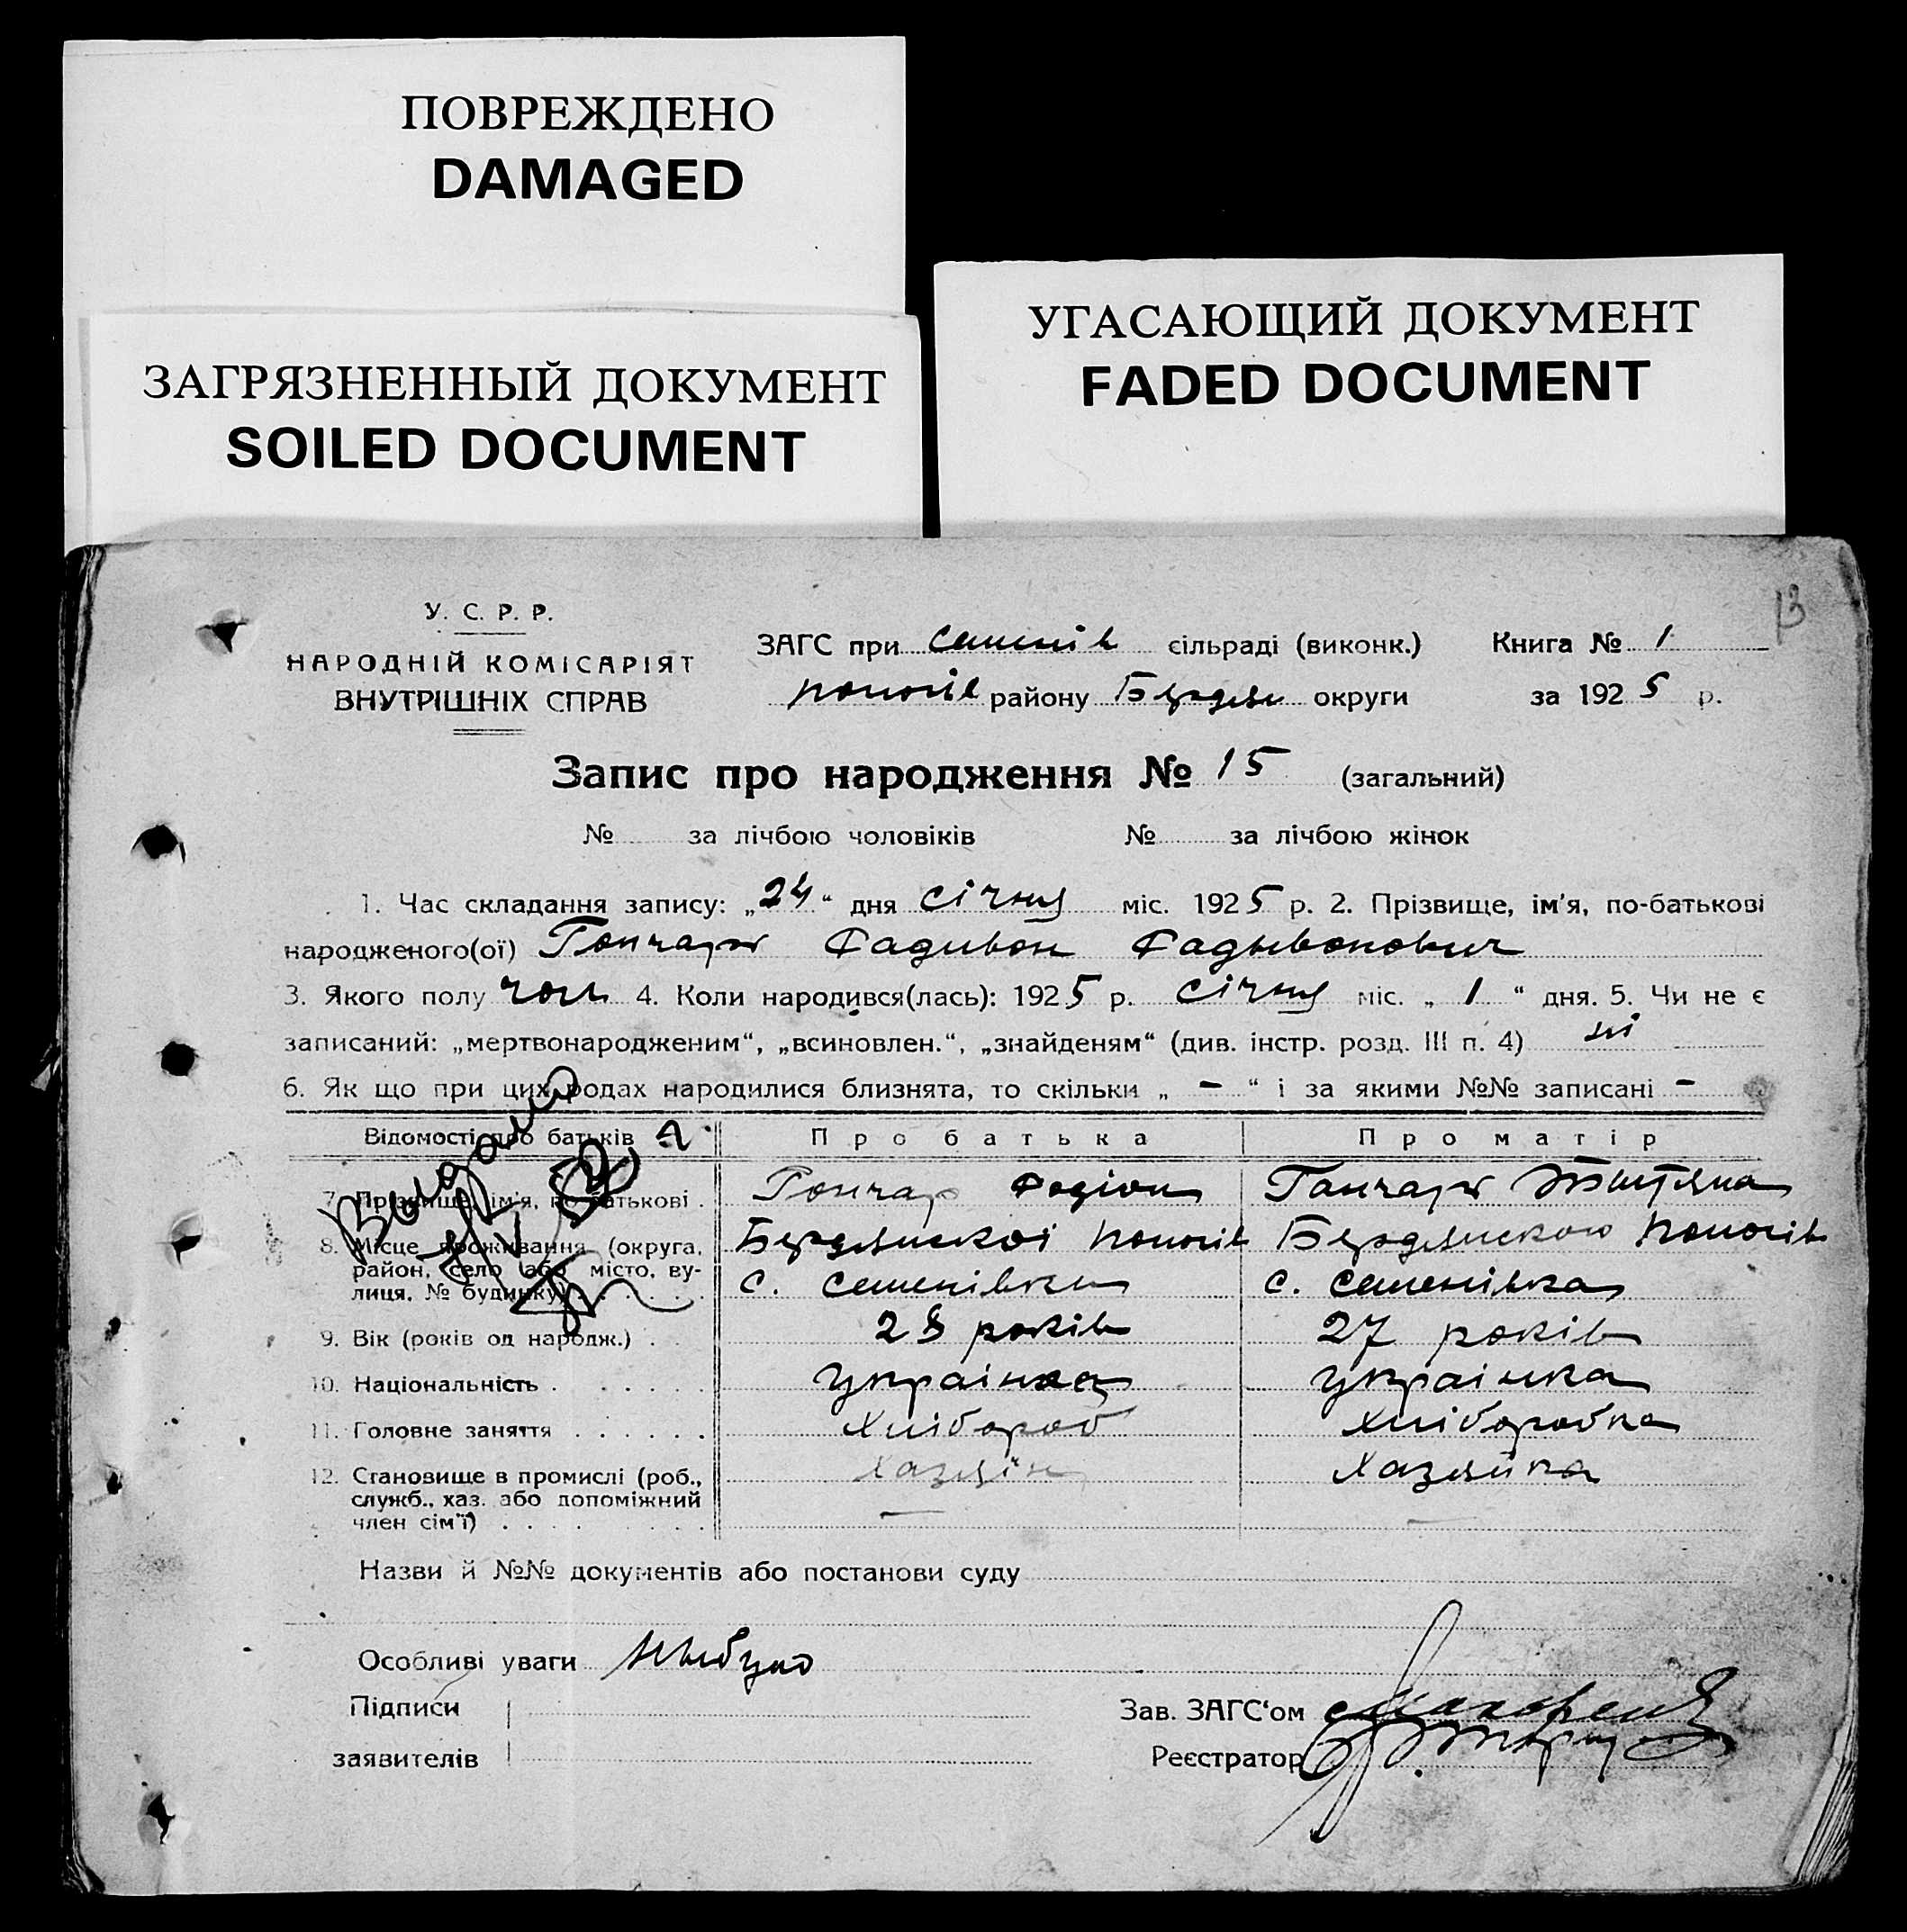 ПОВРЕЖДЕНО
DAMAGED
ЗАГРЯЗНЕННЫЙ ДОКУМЕНТ
SOILED DOCUMENT
УГАСАЮЩИЙ ДОКУМЕНТ
FADED DOCUMENT
13
У. С. Р. Р.
НАРОДНІЙ КОМІСАРІЯТ
ВНУТРІШНІХ СПРАВ
ЗАГС при Семенів сільраді (виконк.) Книга № 1
пологів району Бердян округи за 1925 р.
Запис про народження № 15 (загальний)
№ за лічбою чоловіків № за лічбою жінок
1. Час складання запису: „24“ дня січня міс. 1925 р. 2. Прізвище, ім'я, по-батькові
народженого(ої) Гончарь Фадивон Фадывонович
3. Якого полу чол 4. Коли народився(лась): 1925 р. січня міс. „ 1 “ дня. 5. Чи не є
записаний: „мертвонародженим“, „всиновлен.“, „знайденям“ (див. інстр. розд. III п. 4) ні
6. Як що при цих родах народилися близнята, то скільки „ – “ і за якими №№ записані –
Відомості про батьків Про батька Про матір
7. Прізвище, ім'я, по-батькові Гончар Фодіон Ганчарь Тытяна
8. Місце проживання (округа, Бердянскої пологів Бердянскою пологів
район, село або місто, ву- с. Семенівка с. Семенівка
лиця, № будинку)
9. Вік (років од народж.) 28 років 27 років
10. Національність українец українка
11. Головне заняття Хлібороб Хліборобка
12. Становище в промислі (роб., Хазяїн Хазяйка
служб., хаз. або допоміжний
член сім'ї) — —
Видано
Назви й №№ документів або постанови суду
Особливі уваги Ныбуло
Підписи Зав. ЗАГС'ом
заявителів Реєстратор